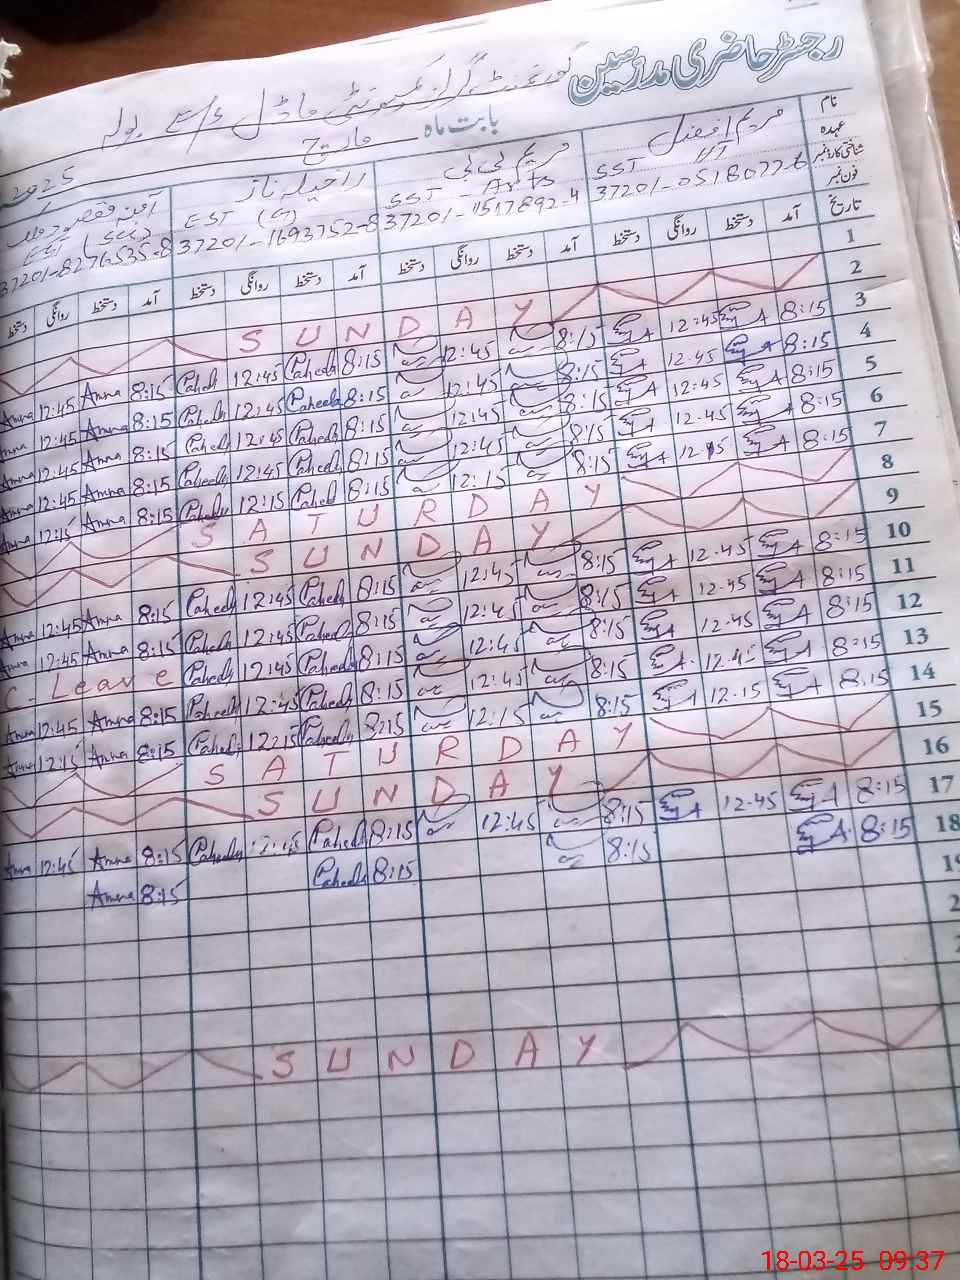 رجسٹر حاضری مدرسین
گورنمنٹ گرلز کمیونٹی ماڈل
بابت ماہ مارچ
2025
نام مریم افضل مریم بی بی راحیلہ ناز آمنہ
عہدہ SST SST Arts EST (G) EST (Sci)
شناختی کارڈ نمبر 37201-0518077-6 37201-1517892-4 37201-1693752-8 37201-8276535-8
فون نمبر
تاریخ آمد دستخط روانگی دستخط آمد دستخط روانگی دستخط آمد دستخط روانگی دستخط آمد دستخط روانگی دستخط
1
2 SUNDAY
3 8:15 12:45 8:15 12:45 8:15 Raheela 12:45 Raheela 8:15 Amna 12:45 Amna
4 8:15 12:45 8:15 12:45 8:15 Raheela 12:45 Raheela 8:15 Amna 12:45 Amna
5 8:15 12:45 8:15 12:45 8:15 Raheela 12:45 Raheela 8:15 Amna 12:45 Amna
6 8:15 12:45 8:15 12:45 8:15 Raheela 12:45 Raheela 8:15 Amna 12:45 Amna
7 8:15 12:15 8:15 12:15 8:15 Raheela 12:15 Raheela 8:15 Amna 12:15 Amna
8 SATURDAY
9 SUNDAY
10 8:15 12:45 8:15 12:45 8:15 Raheela 12:45 Raheela 8:15 Amna 12:45 Amna
11 8:15 12:45 8:15 12:45 8:15 Raheela 12:45 Raheela 8:15 Amna 12:45 Amna
12 8:15 12:45 8:15 12:45 8:15 Raheela 12:45 Raheela C. Leave
13 8:15 12:45 8:15 12:45 8:15 Raheela 12:45 Raheela 8:15 Amna 12:45 Amna
14 8:15 12:15 8:15 12:15 8:15 Raheela 12:15 Raheela 8:15 Amna 12:15 Amna
15 SATURDAY
16 SUNDAY
17 8:15 12:45 8:15 12:45 8:15 Raheela 12:45 Raheela 8:15 Amna 12:45 Amna
18 8:15 8:15 8:15 Raheela 8:15 Amna
19
SUNDAY
18-03-25 09:37